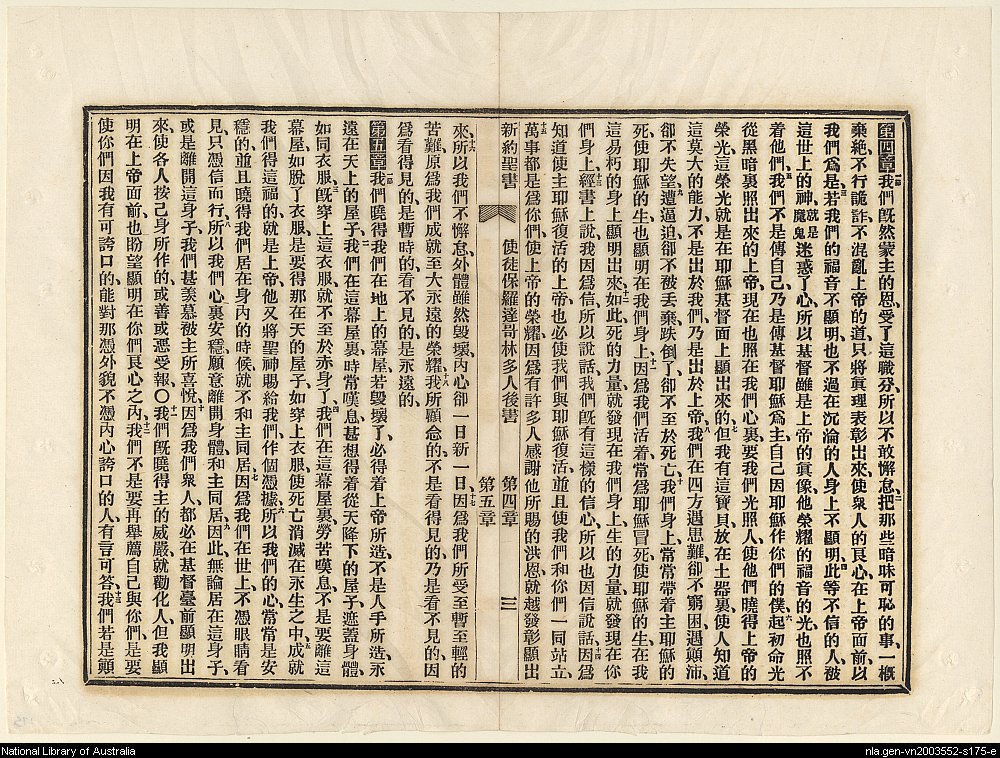 第四章一節我們旣然蒙主的恩、受了這職分、所以不敢懈怠、二把那些暗昧可恥的事、一概
棄絶、不行詭詐、不混亂上帝的道、只將眞理表彰出來、使衆人的良心在上帝面前以
我們爲是、三若我們的福音不顯明、也不過在沉淪的人身上不顯明、四此等不信的人、被
這世上的神、就是魔鬼迷惑了心、所以基督雖是上帝的眞像、他榮耀的福音的光、也照不
着他們、五我們不是傳自己、乃是傳基督耶穌爲主、自己因耶穌作你們的僕、六起初命光
從黑暗裏照出來的上帝、現在也照在我們心裏、要我們光照人、使他們曉得上帝的
榮光、這榮光就是在耶穌基督面上顯出來的、七但我有這寶貝、放在土器裏、使人知道
這莫大的能力、不是出於我們、乃是出於上帝、八我們在四方遇患難、卻不窮困、遇顚沛、
卻不失望、九遭逼迫、卻不被丟棄、跌倒了、卻不至於死亡、十我們身上、常常帶着主耶穌的
死、使耶穌的生、也顯明在我們身上、十一因爲我們活着、常爲耶穌冒死、使耶穌的生、在我
這易朽的身上顯明出來、十二如此、死的力量、就發現在我們身上、生的力量、就發現在你
們身上、十三經書上說、我因爲信、所以說話、我們旣有這樣的信心、所以也因信說話、十四因爲
知道使主耶穌復活的上帝、也必使我們與耶穌復活、並且使我們和你們一同站立、
十五萬事都是爲你們、使上帝的榮耀、因爲有許多人感謝他所賜的洪恩、就越發彰顯出
新約聖書 使徒保羅達哥林多人後書 第四章 第五章 三
來、十六所以我們不懈怠、外體雖然毀壞、內心卻一日新一日、十七因爲我們所受至暫至輕的
苦難、原爲我們成就至大永遠的榮耀、十八我所顧念的、不是看得見的、乃是看不見的、因
爲看得見的是暫時的、看不見的是永遠的、
第五章一節我們曉得我們在地上的幕屋若毀壞了、必得着上帝所造、不是人手所造、永
遠在天上的屋子、二我們在這幕屋裏時常嘆息、甚想得着從天降下的屋子、遮蓋身體、
三如同衣服、旣穿上這衣服、就不至於赤身了、四我們在這幕屋裏勞苦嘆息、不是要離這
幕屋如脫了衣服、是要得那在天的屋子、如穿上衣服、使死亡消滅在永生之中、五成就
我們得這福的、就是上帝、他又將聖神賜給我們、作個憑據、六所以我們的心常常是安
穩的、並且曉得我們居在身內的時候、就不和主同居、七因爲我們在世上、不憑眼睛看
見、只憑信而行、八所以我們心裏安穩、願意離開身體、和主同居、九因此無論居在這身子、
或是離開這身子、我們甚羨慕被主所喜悅、十因爲我們衆人、都必在基督臺前顯明出
來、使各人按己身所作的、或善或惡受報、〇十一我們旣曉得主的威嚴、就勸化人、但我顯
明在上帝面前、也盼望顯明在你們良心之內、十二我們不是要再舉薦自己與你們、是要
使你們因我有可誇口的、能對那憑外貌不憑內心誇口的人、有言可答、十三我們若是顚
National Library of Australia
nla.gen-vn2003552-s175-e